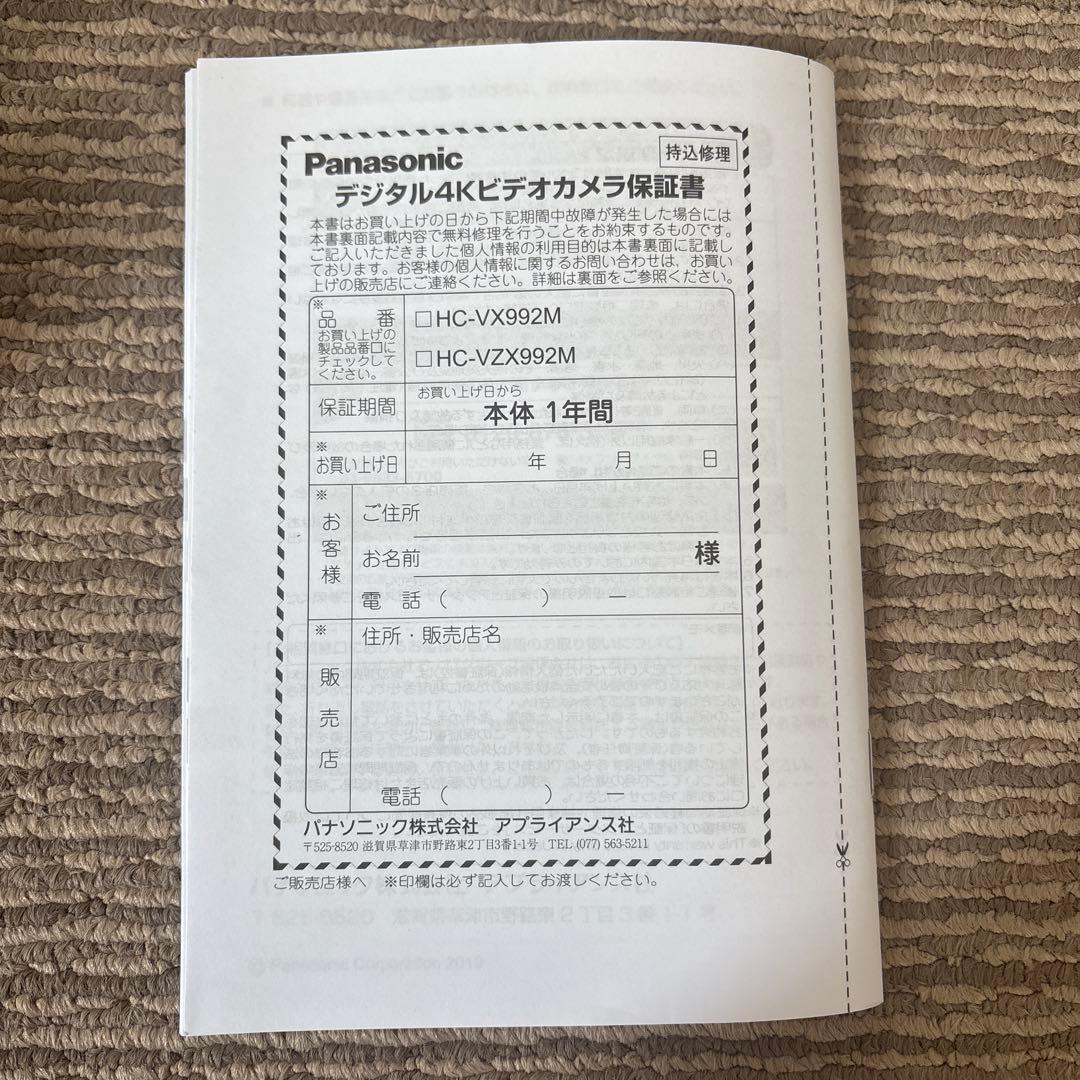 Panasonic
持込修理
デジタル4Kビデオカメラ保証書
本書はお買い上げの日から下記期間中故障が発生した場合には
本書裏面記載内容で無料修理を行うことをお約束するものです。
ご記入いただきました個人情報の利用目的は本書裏面に記載し
ております。お客様の個人情報に関するお問い合わせは、お買い
上げの販売店にご連絡ください。詳細は裏面をご参照ください。
※
品 番
お買い上げの
製品品番□に
チェックして
ください。
□HC-VX992M
□HC-VZX992M
保証期間
お買い上げ日から
本体 1年間
※
お買い上げ日
年 月 日
※
お客様
ご住所
お名前 様
電 話 ( ) ―
※
販売店
住所・販売店名
電話 ( ) ―
パナソニック株式会社 アプライアンス社
〒525-8520 滋賀県草津市野路東2丁目3番1-1号 TEL (077) 563-5211
ご販売店様へ ※印欄は必ず記入してお渡しください。